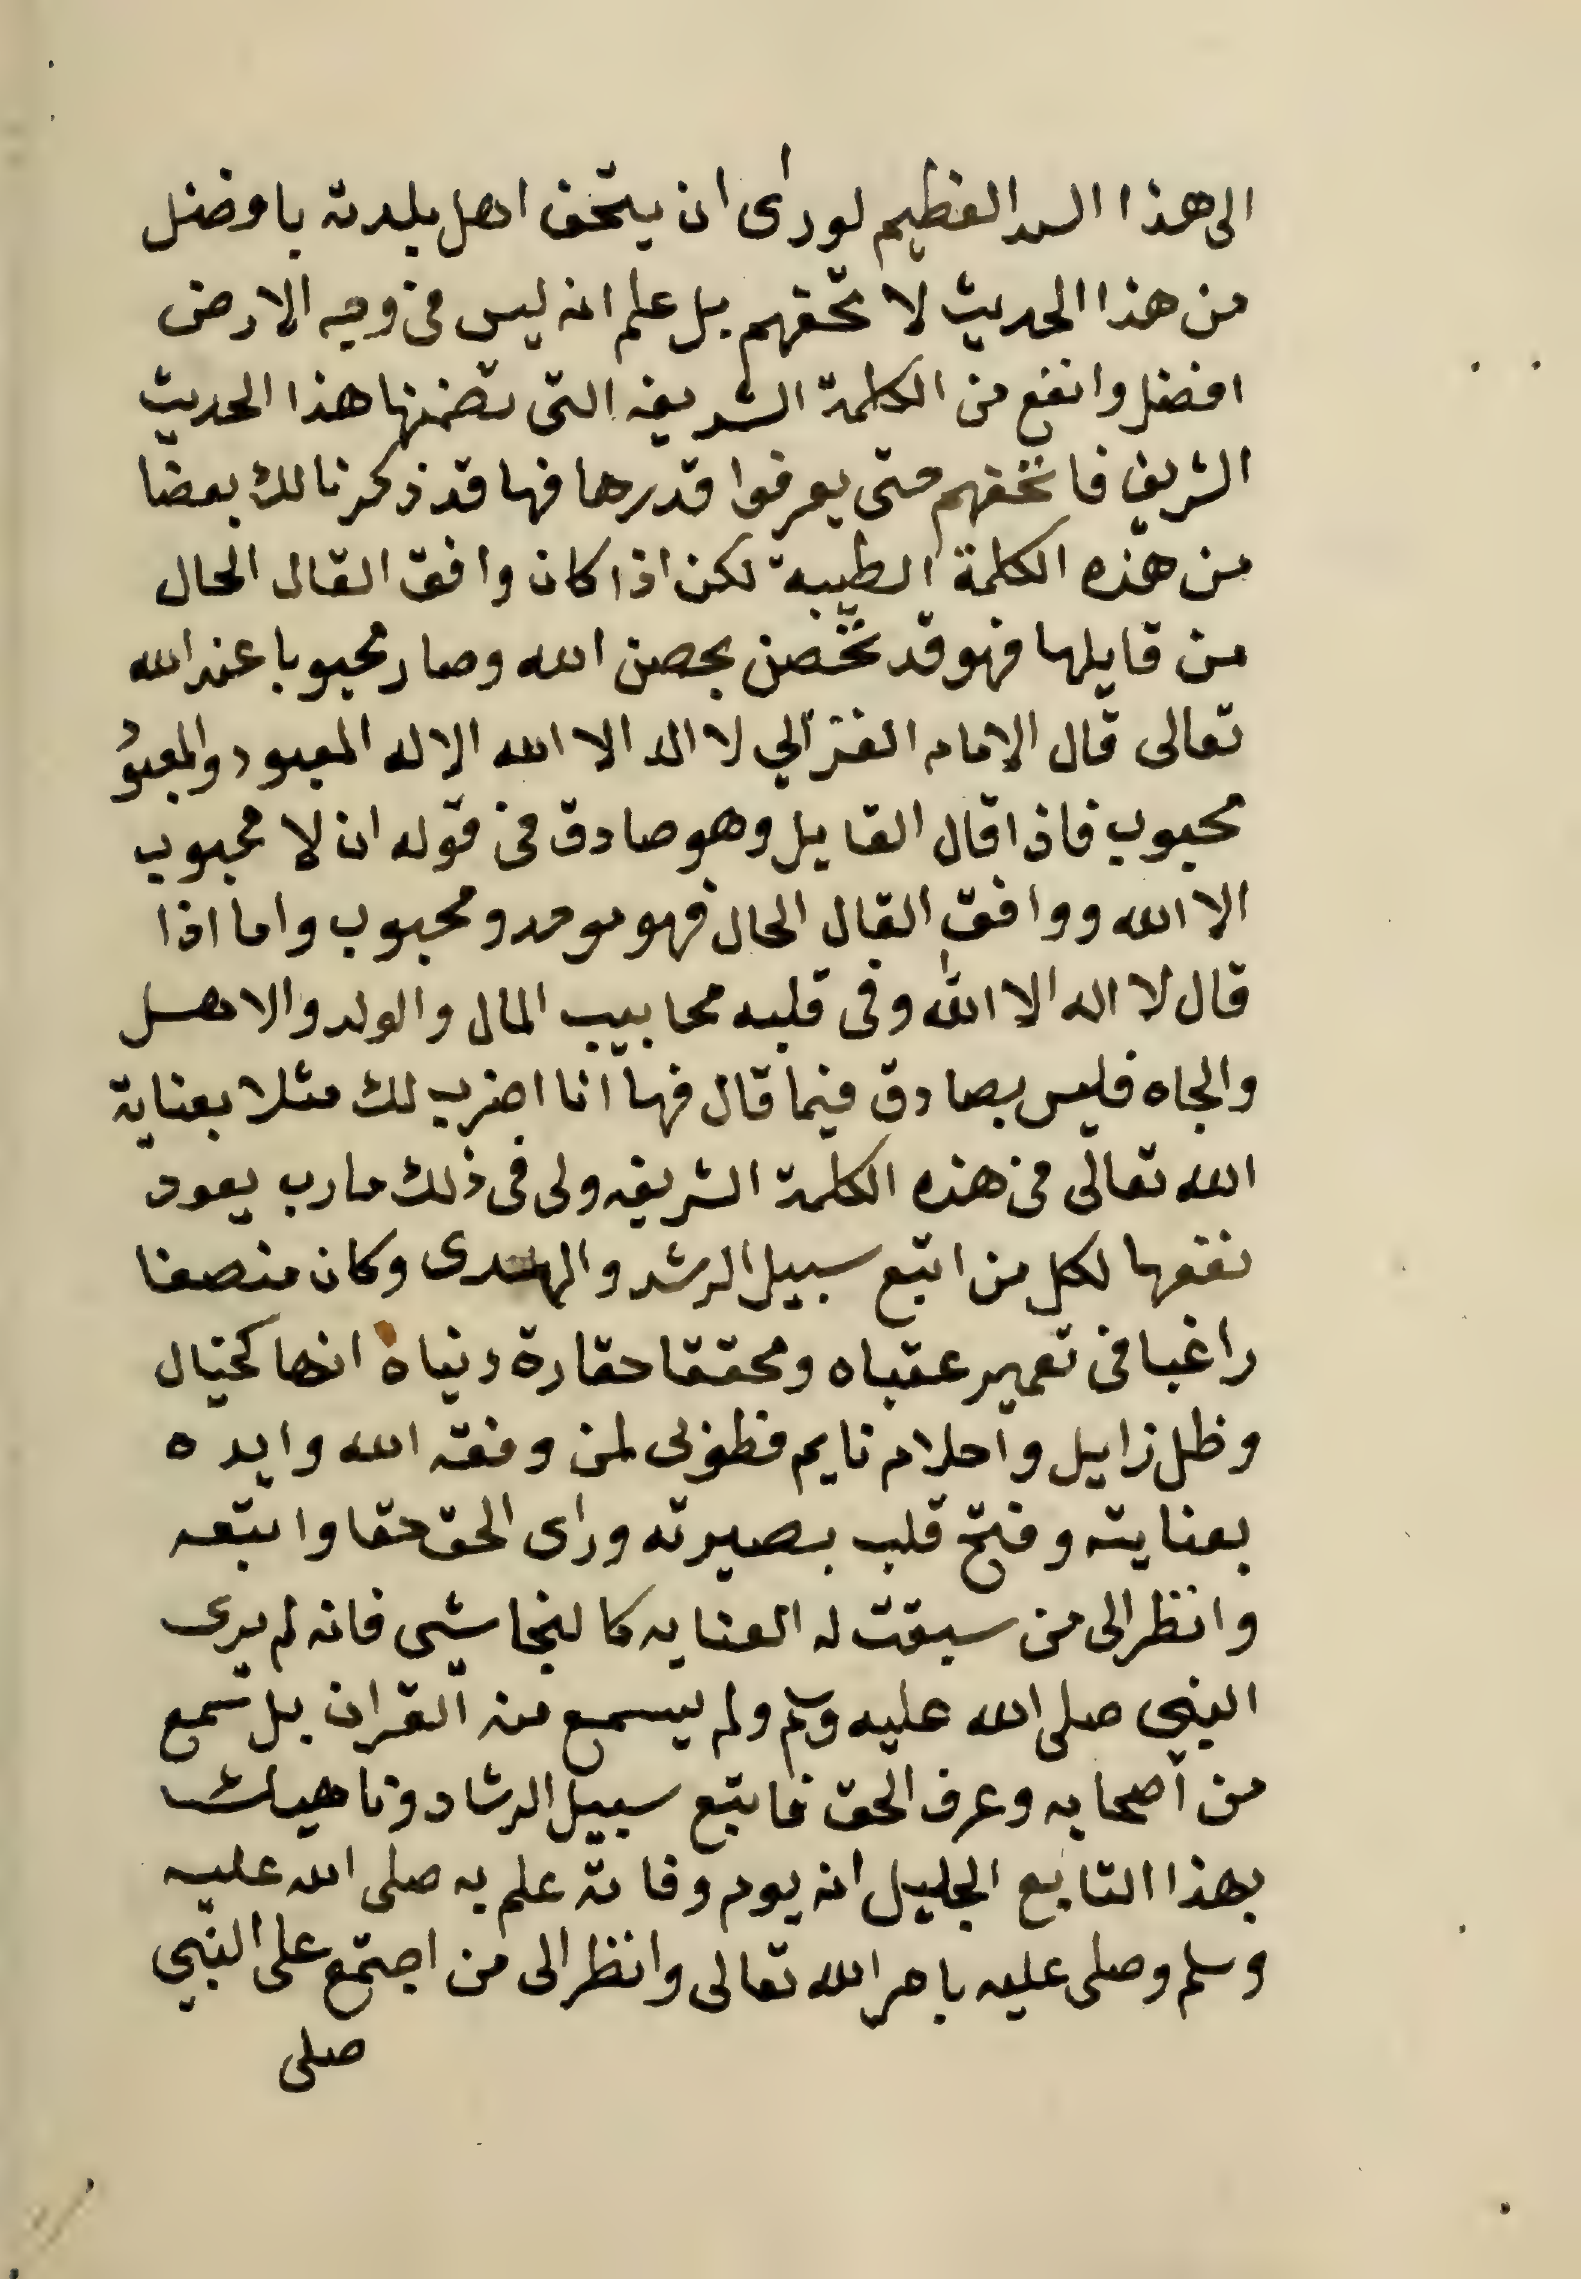 الى هذا السد العظيم لوراى ان يتحف اهل بلدته بافضل
من هذا الحديث لا تحفهم بل علم انه ليس فى وجه الارض
افضل وانفع من الكلمة الشريفه التى تضمنها هذا الحديث
الشريف فاتحفهم حتى يعرفوا قدرها فها قد ذكرنا لك بعضا
من هذه الكلمة الطيبة لكن اذا كان وافق القال الحال
من قايلها فهو قد تحصن بحصن الله وصار محبوبا عند الله
تعالى قال الامام الغزالي لا اله الا الله الاله المعبود والمعبو
محبوب فاذا قال القايل وهو صادق فى قوله ان لا محبوب
الا الله ووافق القال الحال فهو موحد ومحبوب واما اذا
قال لا اله الا الله وفى قلبه محابيب المال والولد والاهل
والجاه فليس بصادق فيما قال فها انا اضرب لك مثلا بعناية
الله تعالى فى هذه الكلمة الشريفه ولى فى ذلك مارب يعود
نفعها لكل من اتبع سبيل الرشد والهدى وكان منصفا
راغبا فى تعمير عقباه ومحققا حقارة دنياه انها كخيال
وظل زايل واحلام نايم فطوبى لمن وفقه الله وايده
بعنايته وفتح قلب بصيرته وراى الحق حقا واتبعه
وانظر الى من سبقت له العنايه كالنجاشى فانه لم يرى
النبي صلى الله عليه وسلم ولم يسمع منه القران بل سمع
من اصحابه وعرف الحق فاتبع سبيل الرشاد وناهيك
بهذا التابع الجليل انه يوم وفاته علم به صلى الله عليه
وسلم وصلى عليه بامر الله تعالى وانظر الى من اجتمع على النبي
صلى